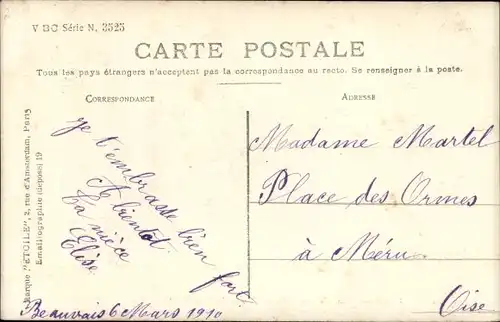 V BC Série N. 3525
CARTE POSTALE
Tous les pays étrangers n'acceptent pas la correspondance au recto. Se renseigner à la poste.
CORRESPONDANCE
ADRESSE
Je t'embrasse bien fort.
A bientôt
Ta nièce
Elise
Beauvais 6 Mars 1910
Madame Martel
Place des Ormes
à Méru
Oise
Marque "ÉTOILE", 2, rue d'Amsterdam, Paris
Emailliographie (déposé) 19